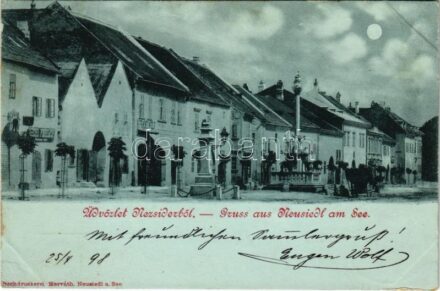 Üdvözlet Nezsiderből. — Gruss aus Neusiedl am See.
Mit freundlichen Sammlergruß!
25/X 98 Eugen Wolf
Buchdruckerei Horváth, Neusiedl a. See
darabanth